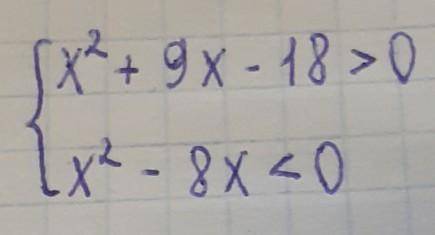 x² + 9x - 18 > 0
x² - 8x < 0